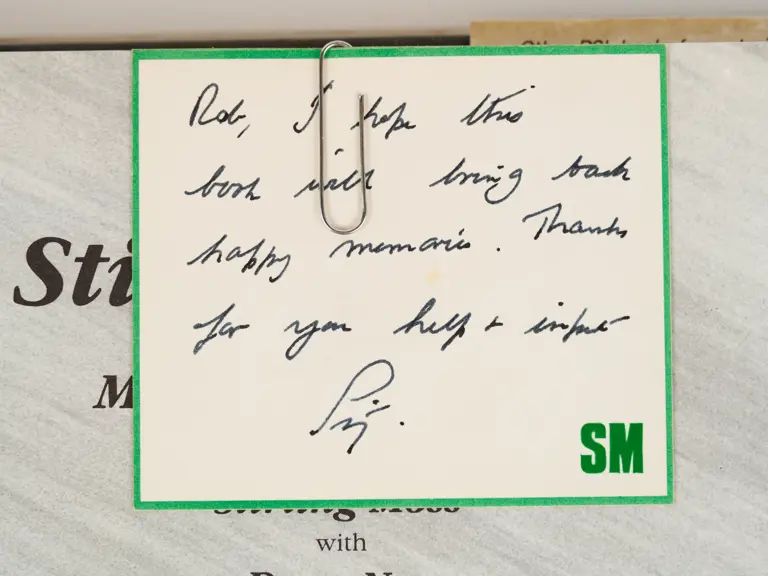 Rob, I hope this
book will bring back
happy memories. Thanks
for you help + input
SM
Sti
M
Stirling Moss
with